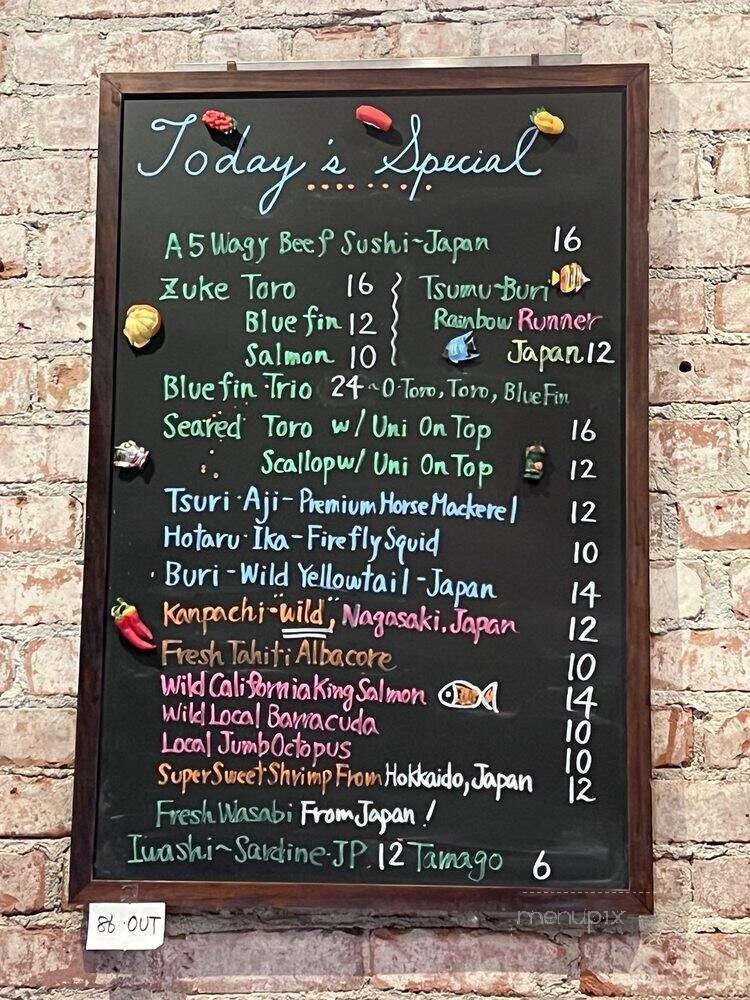 Today's Special
A5 Wagy Beef Sushi~Japan 16
Zuke Toro 16
Blue fin 12
Salmon 10
Tsumu-Buri
Rainbow Runner
Japan 12
Bluefin Trio 24 ~O-Toro, Toro, BlueFin
Seared Toro w/ Uni On Top 16
Scallop w/ Uni On Top 12
Tsuri-Aji-Premium Horse Mackerel 12
Hotaru-Ika-Firefly Squid 10
Buri-Wild Yellowtail-Japan 14
Kanpachi-"wild", Nagasaki, Japan 12
Fresh Tahiti Albacore 10
Wild California King Salmon 14
Wild Local Barracuda 10
Local Jumb Octopus 10
Super Sweet Shrimp From Hokkaido, Japan 12
Fresh Wasabi From Japan!
Iwashi~Sardine-JP. 12 Tamago 6
86-OUT
menupix